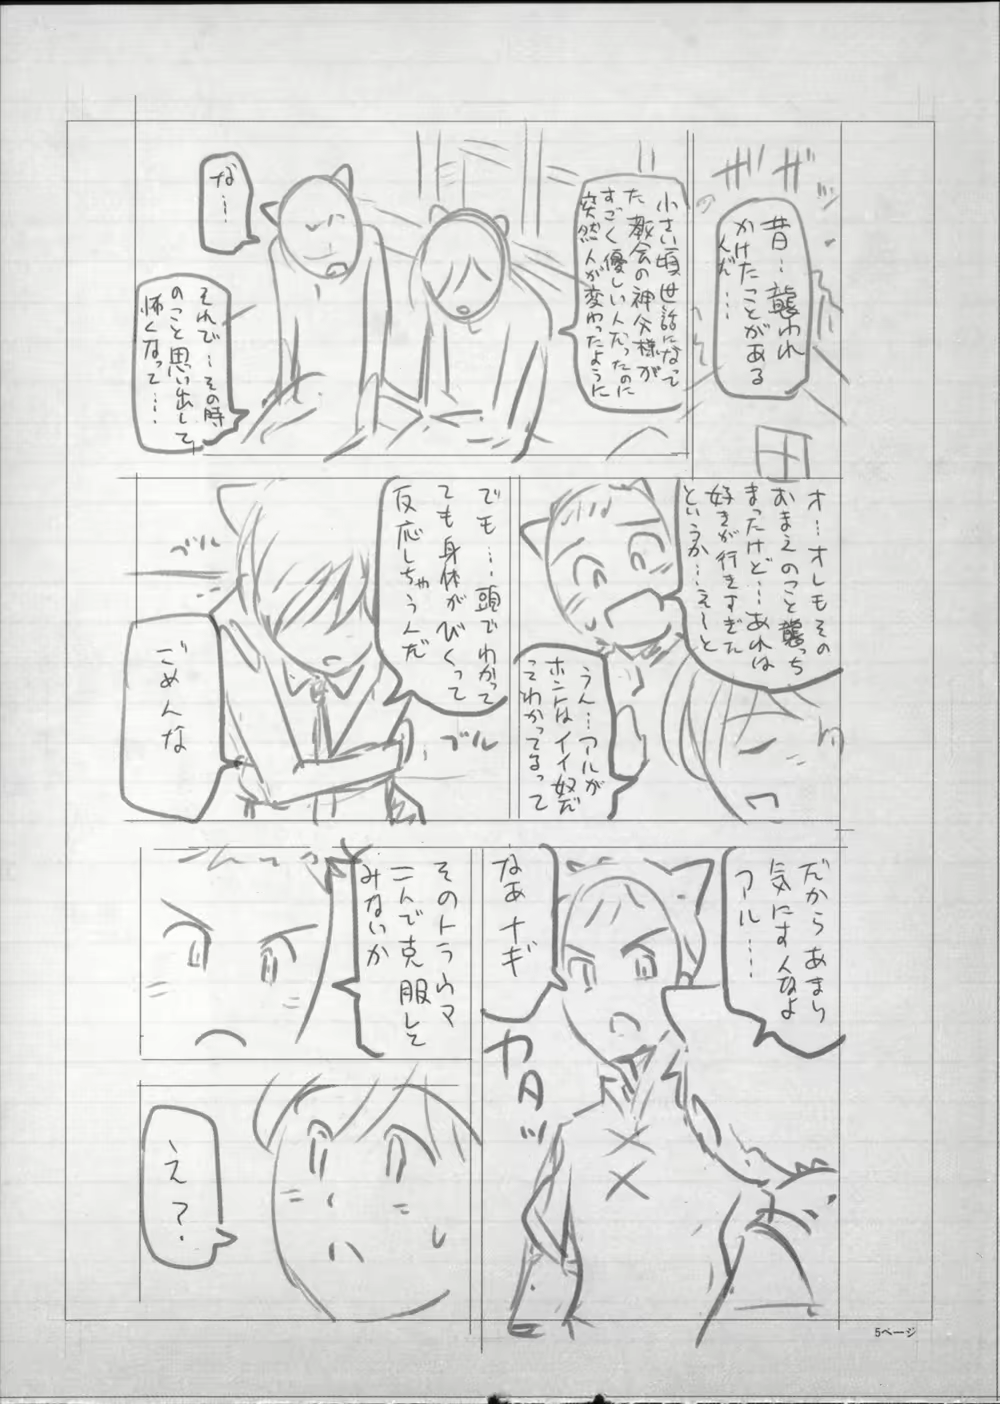 ザザッ
昔…襲われ
かけたことがある
んだ…
小さい頃世話になって
た教会の神父様が
すごく優しい人だったのに
突然人が変わったように
な…
それで…その時
のこと思い出して
怖くなって…
オ…オレもその
おまえのこと襲っち
まったけど…あれは
好きが行きすぎた
というか…えーと
うん…アルが
ホントはイイ奴だ
ってわかってるって
でも…頭でわかって
ても身体がびくって
反応しちゃうんだ
ブル
ブル
ごめんな
だからあまり
気にすんなよ
アル…
なあナギ
ガタッ
そのトラウマ
二人で克服して
みないか
え?
5ページ